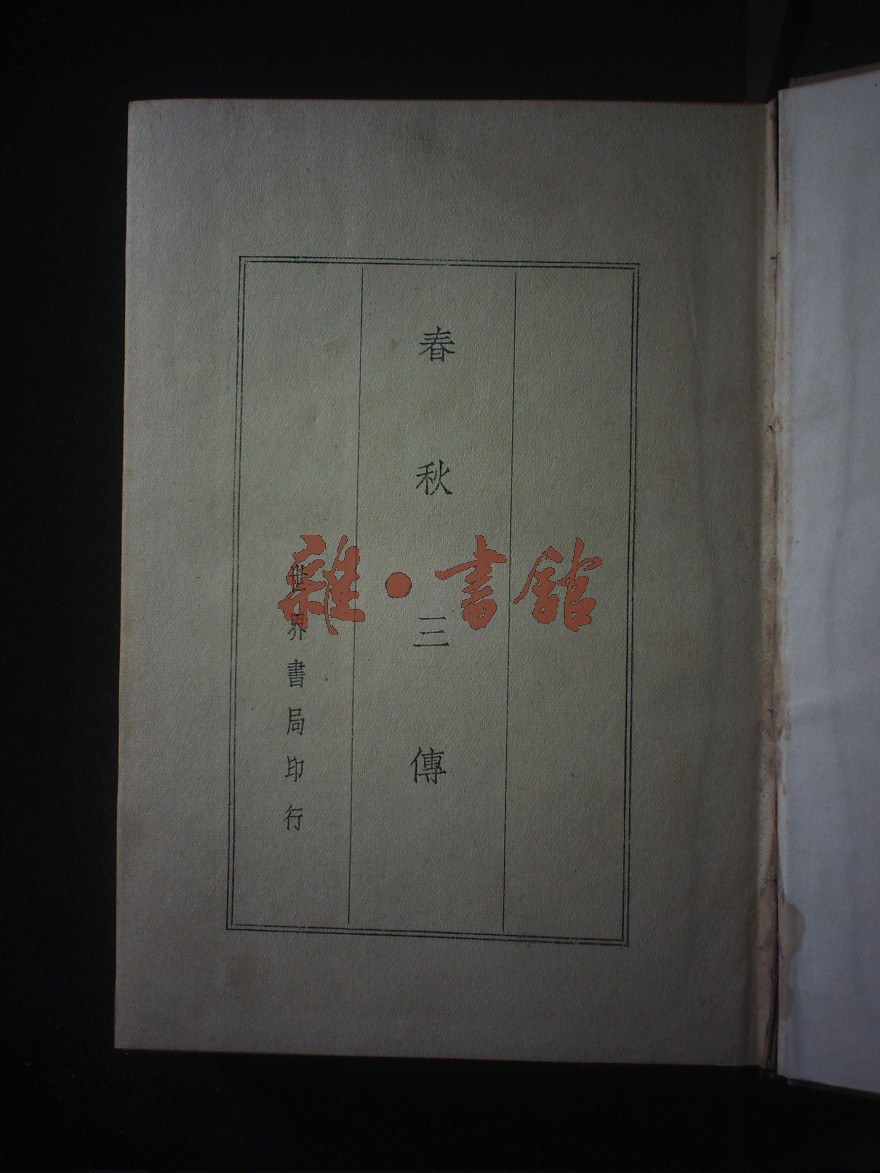 春秋三傳
世界書局印行
雜·書館